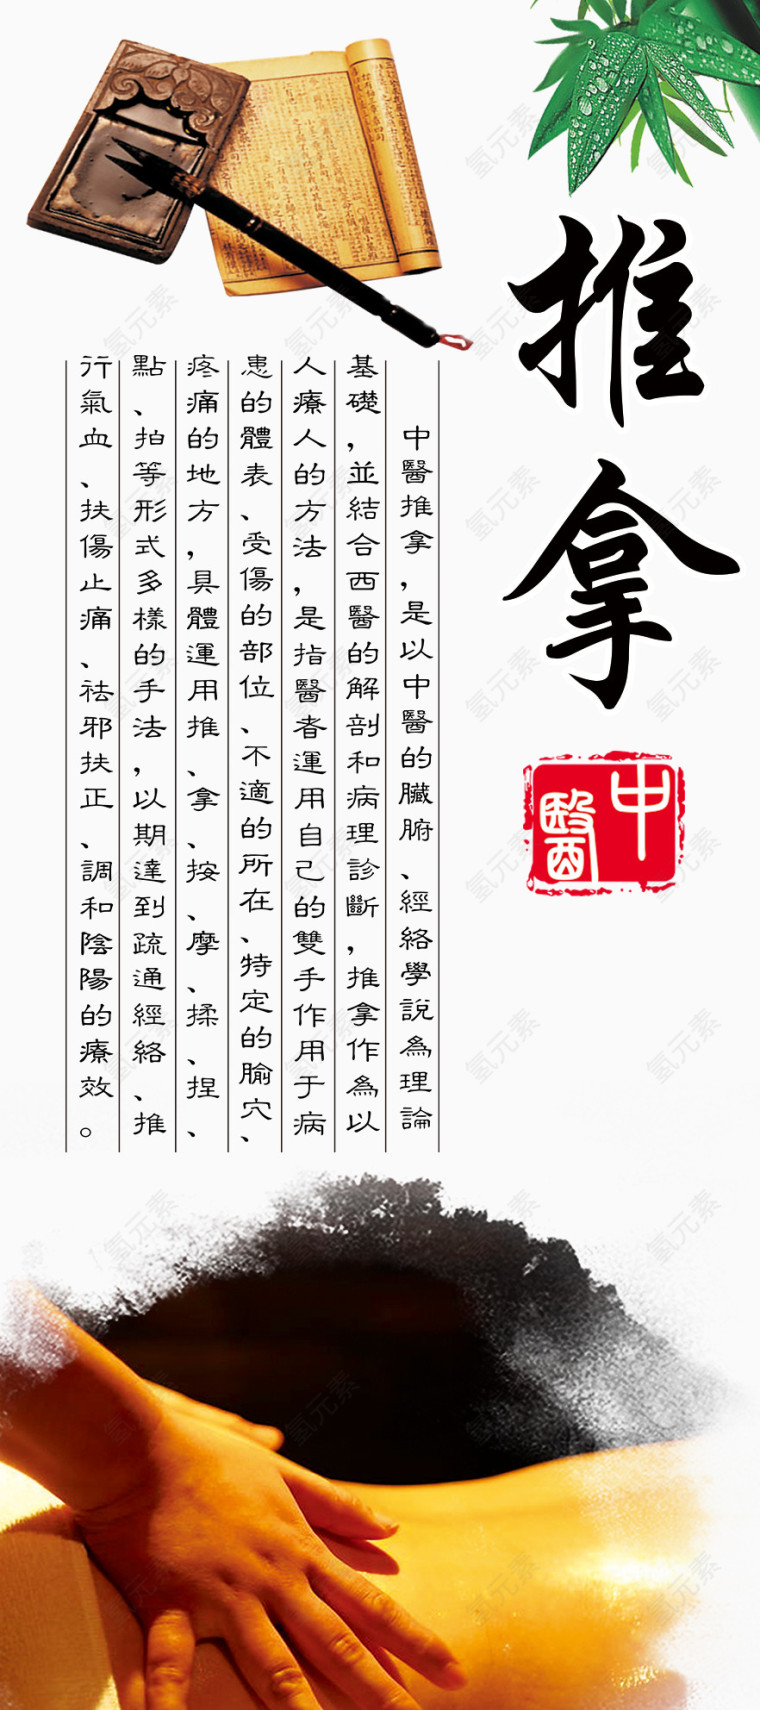 推拿
中醫
中醫推拿，是以中醫的臟腑、經絡學說為理論
基礎，並結合西醫的解剖和病理診斷，推拿作為以
人療人的方法，是指醫者運用自己的雙手作用于病
患的體表、受傷的部位、不適的所在、特定的腧穴、
疼痛的地方，具體運用推、拿、按、摩、揉、捏、
點、拍等形式多樣的手法，以期達到疏通經絡、推
行氣血、扶傷止痛、祛邪扶正、調和陰陽的療效。
氢元素